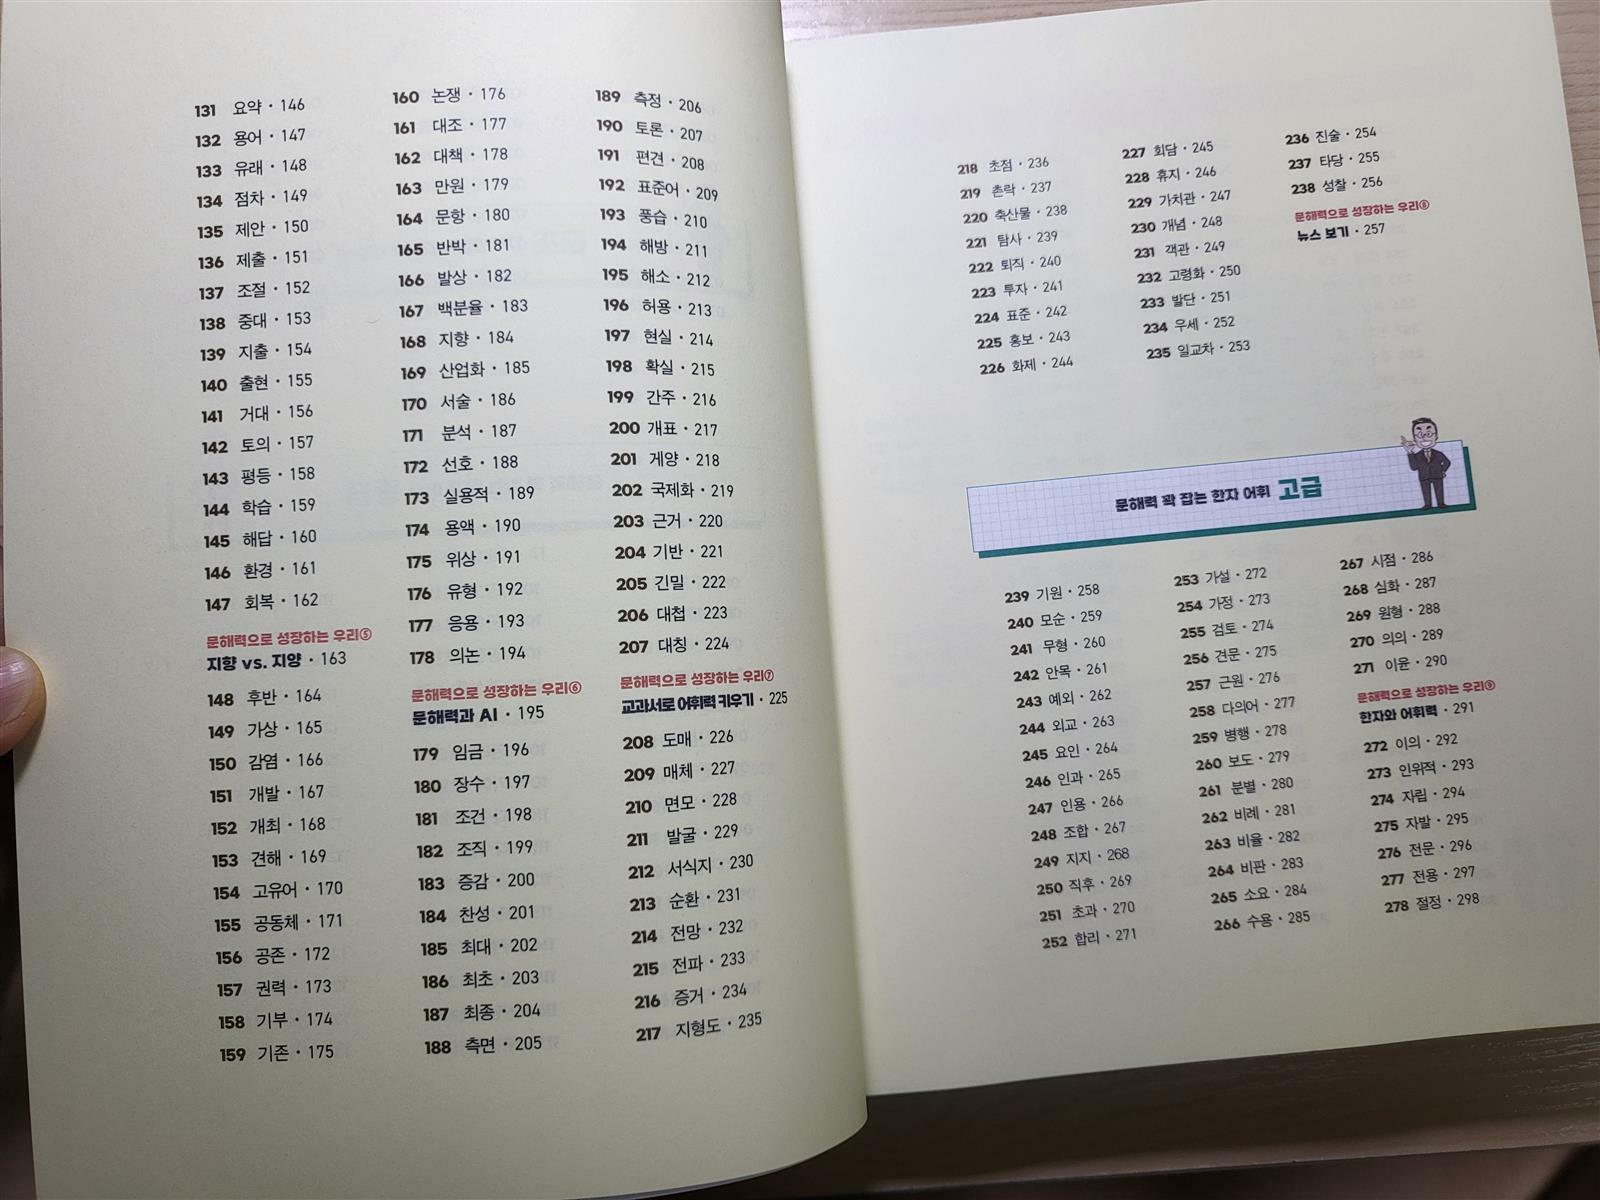 131 요약 · 146
132 용어 · 147
133 유래 · 148
134 점차 · 149
135 제안 · 150
136 제출 · 151
137 조절 · 152
138 중대 · 153
139 지출 · 154
140 출현 · 155
141 거대 · 156
142 토의 · 157
143 평등 · 158
144 학습 · 159
145 해답 · 160
146 환경 · 161
147 회복 · 162
문해력으로 성장하는 우리⑤
지향 vs. 지양 · 163
148 후반 · 164
149 가상 · 165
150 감염 · 166
151 개발 · 167
152 개최 · 168
153 견해 · 169
154 고유어 · 170
155 공동체 · 171
156 공존 · 172
157 권력 · 173
158 기부 · 174
159 기존 · 175
160 논쟁 · 176
161 대조 · 177
162 대책 · 178
163 만원 · 179
164 문항 · 180
165 반박 · 181
166 발상 · 182
167 백분율 · 183
168 지향 · 184
169 산업화 · 185
170 서술 · 186
171 분석 · 187
172 선호 · 188
173 실용적 · 189
174 용액 · 190
175 위상 · 191
176 유형 · 192
177 응용 · 193
178 의논 · 194
문해력으로 성장하는 우리⑥
문해력과 AI · 195
179 임금 · 196
180 장수 · 197
181 조건 · 198
182 조직 · 199
183 증감 · 200
184 찬성 · 201
185 최대 · 202
186 최초 · 203
187 최종 · 204
188 측면 · 205
189 측정 · 206
190 토론 · 207
191 편견 · 208
192 표준어 · 209
193 풍습 · 210
194 해방 · 211
195 해소 · 212
196 허용 · 213
197 현실 · 214
198 확실 · 215
199 간주 · 216
200 개표 · 217
201 게양 · 218
202 국제화 · 219
203 근거 · 220
204 기반 · 221
205 긴밀 · 222
206 대첩 · 223
207 대칭 · 224
문해력으로 성장하는 우리⑦
교과서로 어휘력 키우기 · 225
208 도매 · 226
209 매체 · 227
210 면모 · 228
211 발굴 · 229
212 서식지 · 230
213 순환 · 231
214 전망 · 232
215 전파 · 233
216 증거 · 234
217 지형도 · 235
218 초점 · 236
219 촌락 · 237
220 축산물 · 238
221 탐사 · 239
222 퇴직 · 240
223 투자 · 241
224 표준 · 242
225 홍보 · 243
226 화제 · 244
227 회담 · 245
228 휴지 · 246
229 가치관 · 247
230 개념 · 248
231 객관 · 249
232 고령화 · 250
233 발단 · 251
234 우세 · 252
235 일교차 · 253
236 진술 · 254
237 타당 · 255
238 성찰 · 256
문해력으로 성장하는 우리⑧
뉴스 보기 · 257
문해력 꽉 잡는 한자 어휘 고급
239 기원 · 258
240 모순 · 259
241 무형 · 260
242 안목 · 261
243 예외 · 262
244 외교 · 263
245 요인 · 264
246 인과 · 265
247 인용 · 266
248 조합 · 267
249 지지 · 268
250 직후 · 269
251 초과 · 270
252 합리 · 271
253 가설 · 272
254 가정 · 273
255 검토 · 274
256 견문 · 275
257 근원 · 276
258 다의어 · 277
259 병행 · 278
260 보도 · 279
261 분별 · 280
262 비례 · 281
263 비율 · 282
264 비판 · 283
265 소요 · 284
266 수용 · 285
267 시점 · 286
268 심화 · 287
269 원형 · 288
270 의의 · 289
271 이윤 · 290
문해력으로 성장하는 우리⑨
한자와 어휘력 · 291
272 이의 · 292
273 인위적 · 293
274 자립 · 294
275 자발 · 295
276 전문 · 296
277 전용 · 297
278 절정 · 298